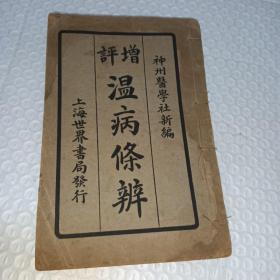 神州醫學社新編
增評
温病條辨
上海世界書局發行